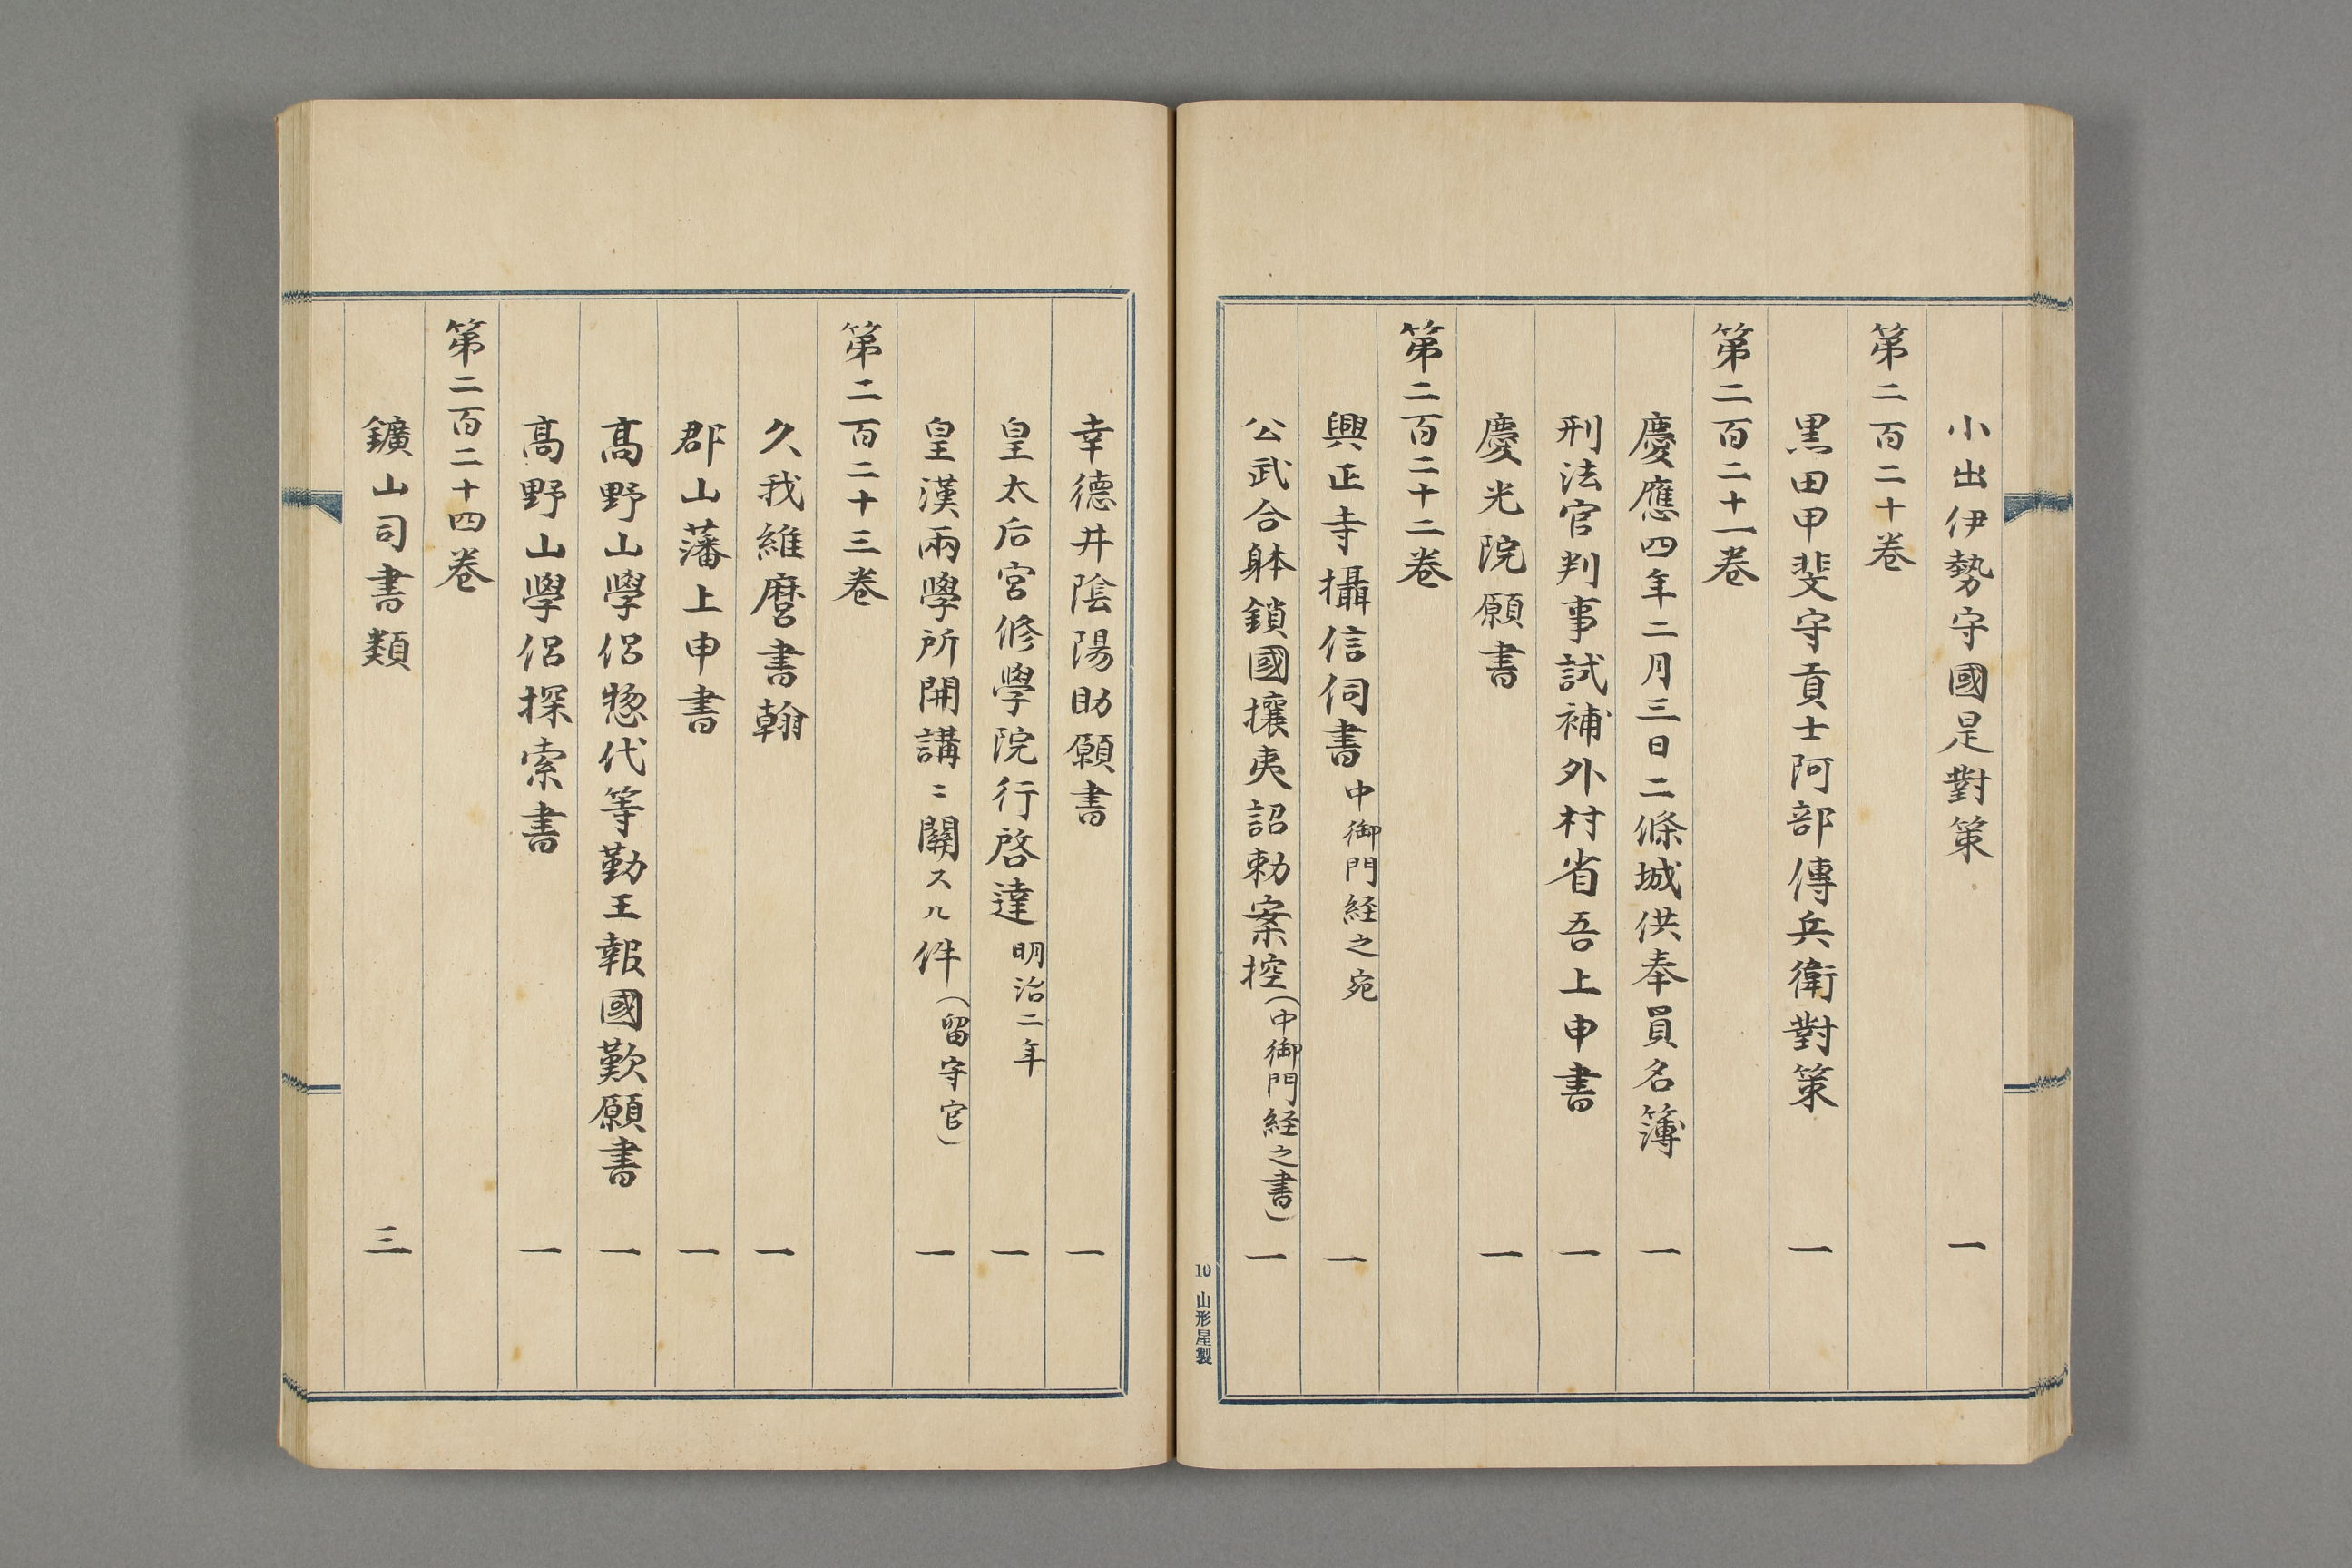 小出伊勢守國是對策 一
第二百二十卷
黒田甲斐守貢士阿部傳兵衛對策 一
第二百二十一卷
慶應四年二月三日二條城供奉員名簿 一
刑法官判事試補外村省吾上申書 一
慶光院願書 一
第二百二十二卷
興正寺攝信伺書 中御門経之宛 一
公武合躰鎖國攘夷詔勅案控(中御門経之書) 一
10 山形屋製
幸德井陰陽助願書 一
皇太后宮修學院行啓達 明治二年 一
皇漢兩學所開講ニ關スル件(留守官) 一
第二百二十三卷
久我維麿書翰 一
郡山藩上申書 一
髙野山學侶惣代等勤王報國歎願書 一
髙野山學侶探索書 一
第二百二十四卷
鑛山司書類 三